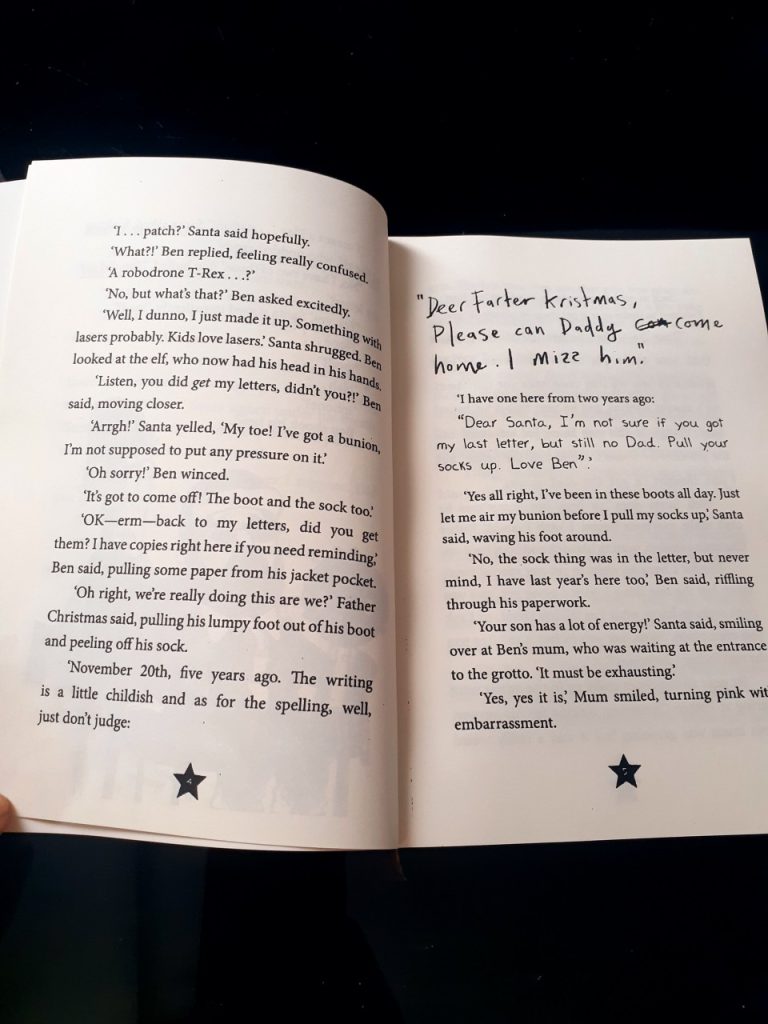 'I . . . patch?' Santa said hopefully.
'What?!' Ben replied, feeling really confused.
'A robodrone T-Rex . . .?'
'No, but what's that?' Ben asked excitedly.
'Well, I dunno, I just made it up. Something with
lasers probably. Kids love lasers.' Santa shrugged. Ben
looked at the elf, who now had his head in his hands.
'Listen, you did get my letters, didn't you?!' Ben
said, moving closer.
'Arrgh!' Santa yelled, 'My toe! I've got a bunion,
I'm not supposed to put any pressure on it.'
'Oh sorry!' Ben winced.
'It's got to come off! The boot and the sock too.'
'OK—erm—back to my letters, did you get
them? I have copies right here if you need reminding,'
Ben said, pulling some paper from his jacket pocket.
'Oh right, we're really doing this are we?' Father
Christmas said, pulling his lumpy foot out of his boot
and peeling off his sock.
'November 20th, five years ago. The writing
is a little childish and as for the spelling, well,
just don't judge:
4
"Deer Farter Kristmas,
Please can Daddy come
home. I mizz him."
'I have one here from two years ago:
"Dear Santa, I'm not sure if you got
my last letter, but still no Dad. Pull your
socks up. Love Ben".'
'Yes all right, I've been in these boots all day. Just
let me air my bunion before I pull my socks up,' Santa
said, waving his foot around.
'No, the sock thing was in the letter, but never
mind, I have last year's here too,' Ben said, riffling
through his paperwork.
'Your son has a lot of energy!' Santa said, smiling
over at Ben's mum, who was waiting at the entrance
to the grotto. 'It must be exhausting.'
'Yes, yes it is,' Mum smiled, turning pink wit
embarrassment.
5